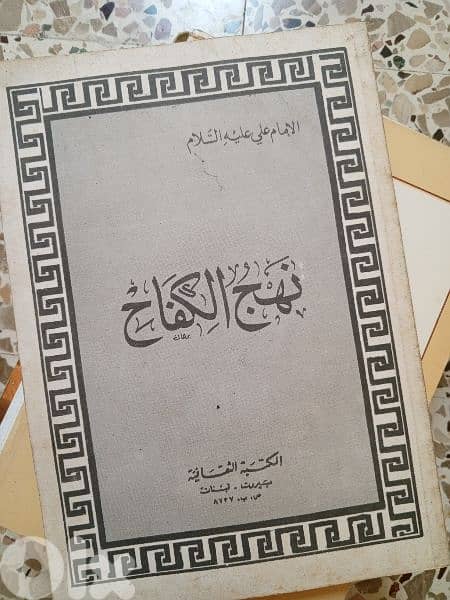 الإمام علي عليه السّلام
نهج الكفاح
المكتبة الثقافية
بيروت - لبنان
ص.ب. ٨٧٣٧